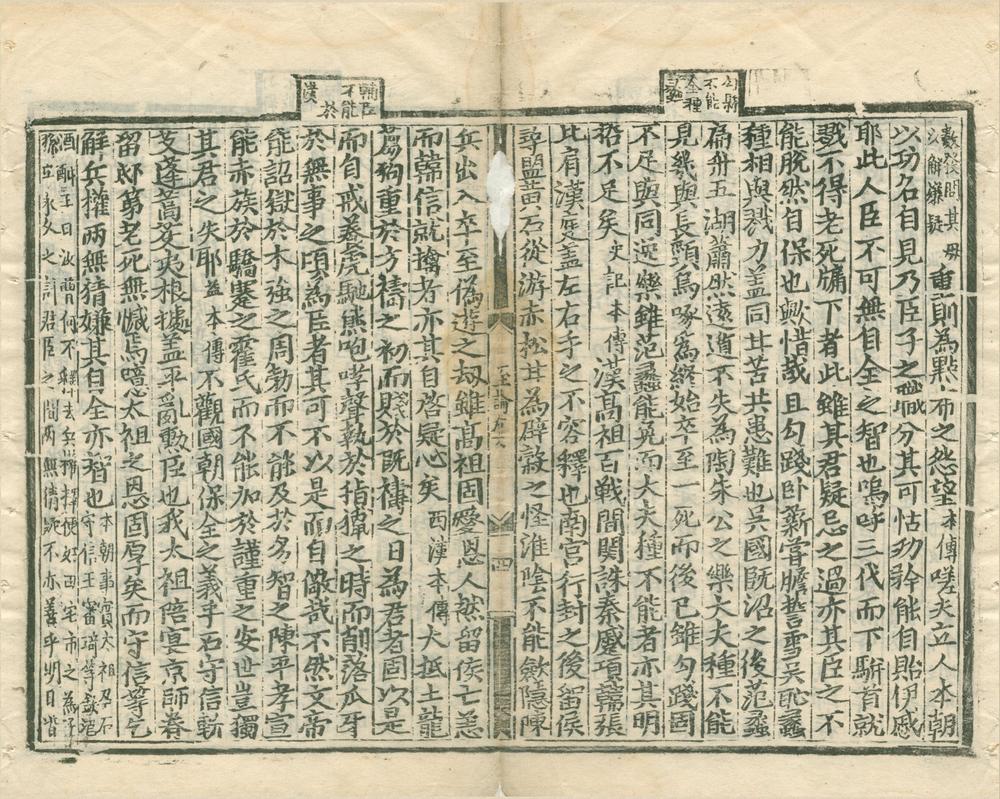 勾踐
不能
全種
蠡
數發問其母
以解嫌疑重則為黥布之怨望本傳嗟夫立人本朝
以功名自見乃臣子之職分其可怙功幹能自貽伊慼
耶此人臣不可無自全之智也嗚呼三代而下駢首就
戮不得老死牖下者此雖其君疑忌之過亦其臣之不
能脫然自保也歟惜哉且勾踐卧薪嘗膽誓雪吳恥蠡
種相與戮力盖同其苦共患難也吳國既沼之後范蠡
扁舟五湖蕭然遠遁不失為陶朱公之樂大夫種不能
見幾與長頸烏啄為終始卒至一死而後已雖勾踐固
不足與同逆樂雖范蠡能免而大夫種不能者亦其明
哲不足矣史記本傳漢髙祖百戰間関誅秦蹙項蕭張
比肩漢庭盖左右手之不容釋也南宮行封之後留侯
尋盟黄石從游赤松甘為辟穀之怪淮陰不能斂隱陳
輔臣
不能
於
漢
兵出入卒至偽遊之劫雖髙祖固慘恩人然留侯亡恙
而韓信就擒者亦其自啓疑心矣西漢本傳大抵土龍
芻狗重於方禱之初而賤於既禱之日為君者固以是
而自戒養虎馳熊咆哮聲執於指揮之時而削落爪牙
於無事之頃為臣者其可不以是而自儆哉不然文帝
能詔獄於木強之周勃而不能及於多智之陳平孝宣
能赤族於驕蹇之霍氏而不能加於謹重之安世豈獨
其君之失耶並本傳不觀國朝保全之義乎石守信斬
艾蓬蒿芟夷根據盖平亂勳臣也我太祖陪宴京師眷
留邸第老死無憾焉噫太祖之恩固厚矣而守信等乞
解兵權兩無猜嫌其自全亦智也本朝事實太祖召石
守信王審琦等飲酒
酒酣王曰汝曹何不釋去兵權擇便好田宅市之為子
孫立永久之計君臣之間兩無猜嫌不亦善乎明日皆